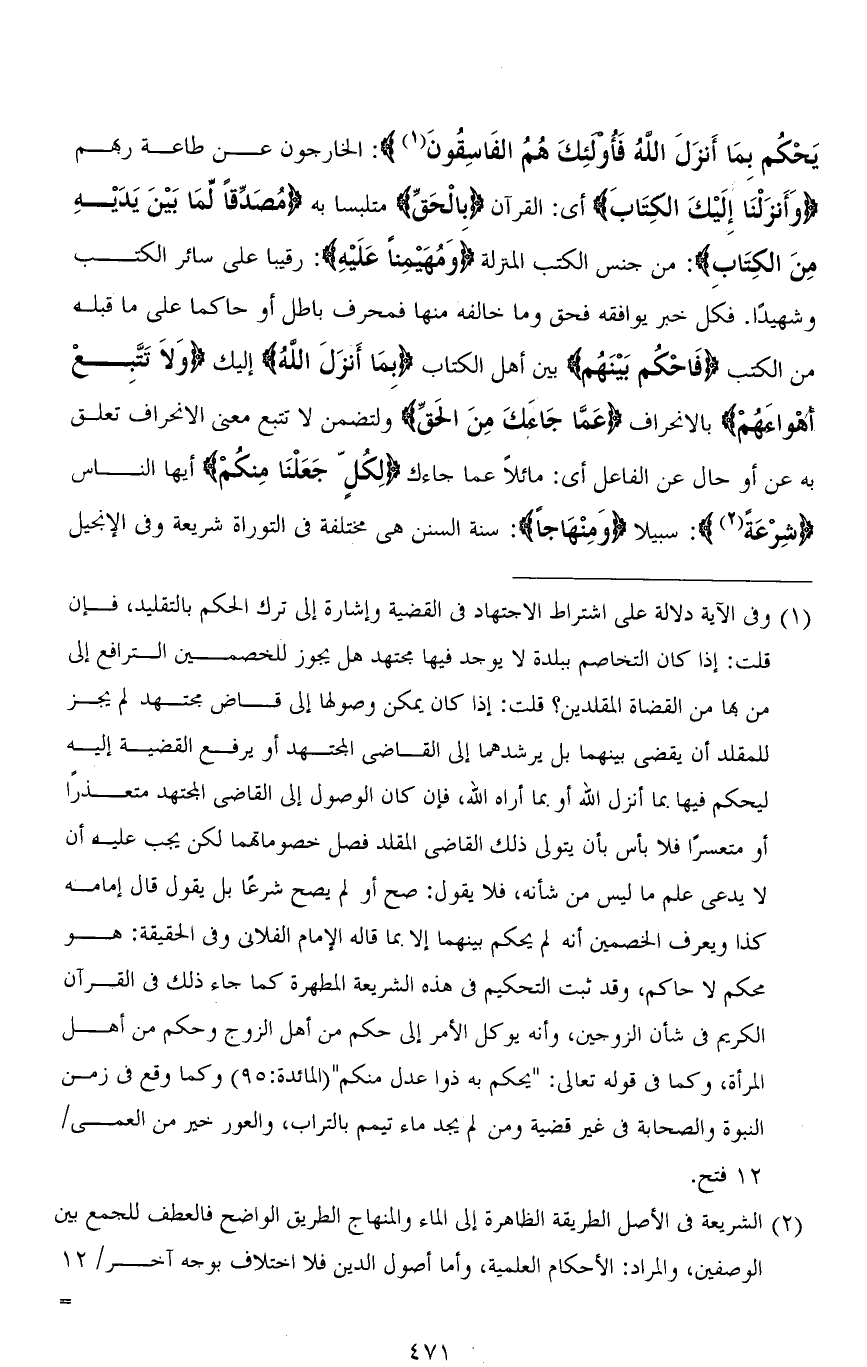 يَحْكُم بِمَا أَنزَلَ اللَّهُ فَأُوْلَئِكَ هُمُ الفَاسِقُونَ(١)﴾: الخارجون عن طاعة ربهم
﴿وَأَنزَلْنَا إِلَيْكَ الكِتَابَ﴾ أى: القرآن ﴿بِالْحَقِّ﴾ متلبسا به ﴿مُصَدِّقاً لِّمَا بَيْنَ يَدَيْهِ
مِنَ الكِتَابِ﴾: من جنس الكتب المنزلة ﴿وَمُهَيْمِناً عَلَيْهِ﴾: رقيبا على سائر الكتب
وشهيدًا. فكل خبر يوافقه فحق وما خالفه منها فمحرف باطل أو حاكما على ما قبله
من الكتب ﴿فَاحْكُم بَيْنَهُم﴾ بين أهل الكتاب ﴿بِمَا أَنزَلَ اللَّهُ﴾ إليك ﴿وَلاَ تَتَّبِعْ
أَهْوَاءَهُمْ﴾ بالانحراف ﴿عَمَّا جَاءَكَ مِنَ الحَقِّ﴾ ولتضمن لا تتبع معنى الانحراف تعلق
به عن أو حال عن الفاعل أى: مائلاً عما جاءك ﴿لِكُلٍّ جَعَلْنَا مِنكُمْ﴾ أيها الناس
﴿شِرْعَةً(٢)﴾: سبيلا ﴿وَمِنْهَاجاً﴾: سنة السنن هى مختلفة فى التوراة شريعة وفى الإنجيل
(١) وفى الآية دلالة على اشتراط الاجتهاد فى القضية وإشارة إلى ترك الحكم بالتقليد، فإن
قلت: إذا كان التخاصم ببلدة لا يوجد فيها مجتهد هل يجوز للخصمين الترافع إلى
من بها من القضاة المقلدين؟ قلت: إذا كان يمكن وصولها إلى قاض مجتهد لم يجز
للمقلد أن يقضى بينهما بل يرشدهما إلى القاضى المجتهد أو يرفع القضية إليه
ليحكم فيها بما أنزل الله أو بما أراه الله، فإن كان الوصول إلى القاضى المجتهد متعذرًا
أو متعسرًا فلا بأس بأن يتولى ذلك القاضى المقلد فصل خصوماتهما لكن يجب عليه أن
لا يدعى علم ما ليس من شأنه، فلا يقول: صح أو لم يصح شرعًا بل يقول قال إمامه
كذا ويعرف الخصمين أنه لم يحكم بينهما إلا بما قاله الإمام الفلانى وفى الحقيقة: هو
محكم لا حاكم، وقد ثبت التحكيم فى هذه الشريعة المطهرة كما جاء ذلك فى القرآن
الكريم فى شأن الزوجين، وأنه يوكل الأمر إلى حكم من أهل الزوج وحكم من أهل
المرأة، وكما فى قوله تعالى: "يحكم به ذوا عدل منكم"(المائدة:٩٥) وكما وقع فى زمن
النبوة والصحابة فى غير قضية ومن لم يجد ماء تيمم بالتراب، والعور خير من العمى/
١٢ فتح.
(٢) الشريعة فى الأصل الطريقة الظاهرة إلى الماء والمنهاج الطريق الواضح فالعطف للجمع بين
الوصفين، والمراد: الأحكام العلمية، وأما أصول الدين فلا اختلاف بوجه آخر/ ١٢
=
٤٧١